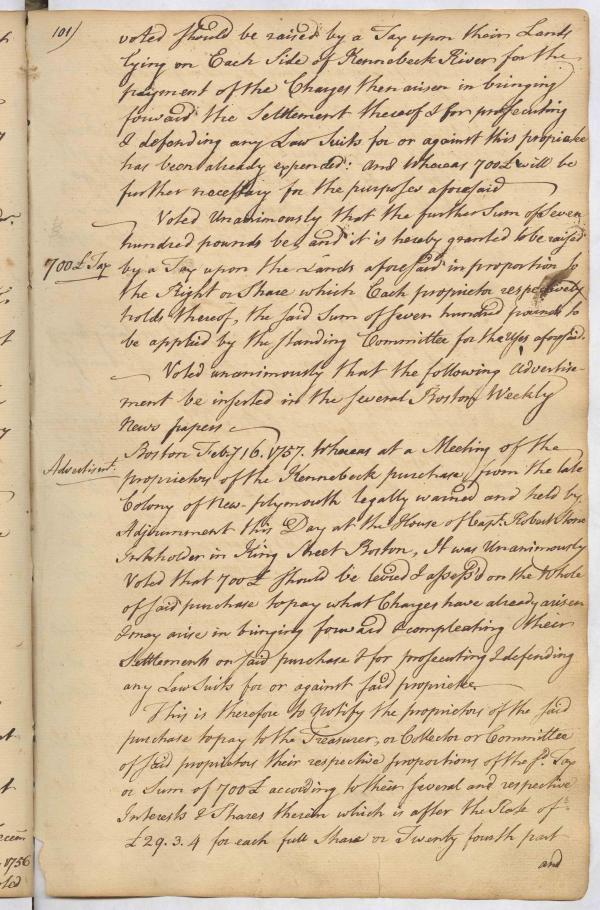 101)
voted should be raised by a Tax upon their Lands
lying on Each Side of Kennebeck River for the
payment of the Charges then arisen in bringing
forward the Settlement thereof & for prosecuting
& defending any Law Suits for or against this propriete
has been already expended: And Whereas 700£ will be
further necessary for the purposes aforesaid
Voted Unanimously that the further Sum of Seven
hundred pounds be, and it is hereby granted to be raised
700£ Tax
by a Tax upon the Lands aforesaid in proportion to
the Right or Share which Each proprietor respectively
holds thereof, the said Sum of Seven hundred pounds to
be applied by the standing Committee for the Uses aforesaid.
Voted unanimously that the following Advertise-
ment be inserted in the several Boston Weekly
News papers
Advertisemt.
Boston Feby 16. 1757. Whereas at a Meeting of the
proprietors of the Kennebeck purchase from the late
Colony of New-plymouth legally warned and held by
Adjournment this Day at the House of Capt. Robert Stone
Inholder in King Street Boston, It was Unanimously
Voted that 700£ should be levied & assess'd on the Whole
of said purchase to pay what Charges have already arisen
& may arise in bringing forward & compleating their
Settlements on said purchase & for prosecuting & defending
any Law Suits for or against said propriete
This is therefore to Notify the proprietors of the said
purchase to pay to the Treasurer, or Collector or Committee
of said proprietors their respective proportions of the sd. Tax
or Sum of 700£ according to their several and respective
Interests & Shares therein which is after the Rate of
£29.3.4 for each full Share or Twenty fourth part
and
1756